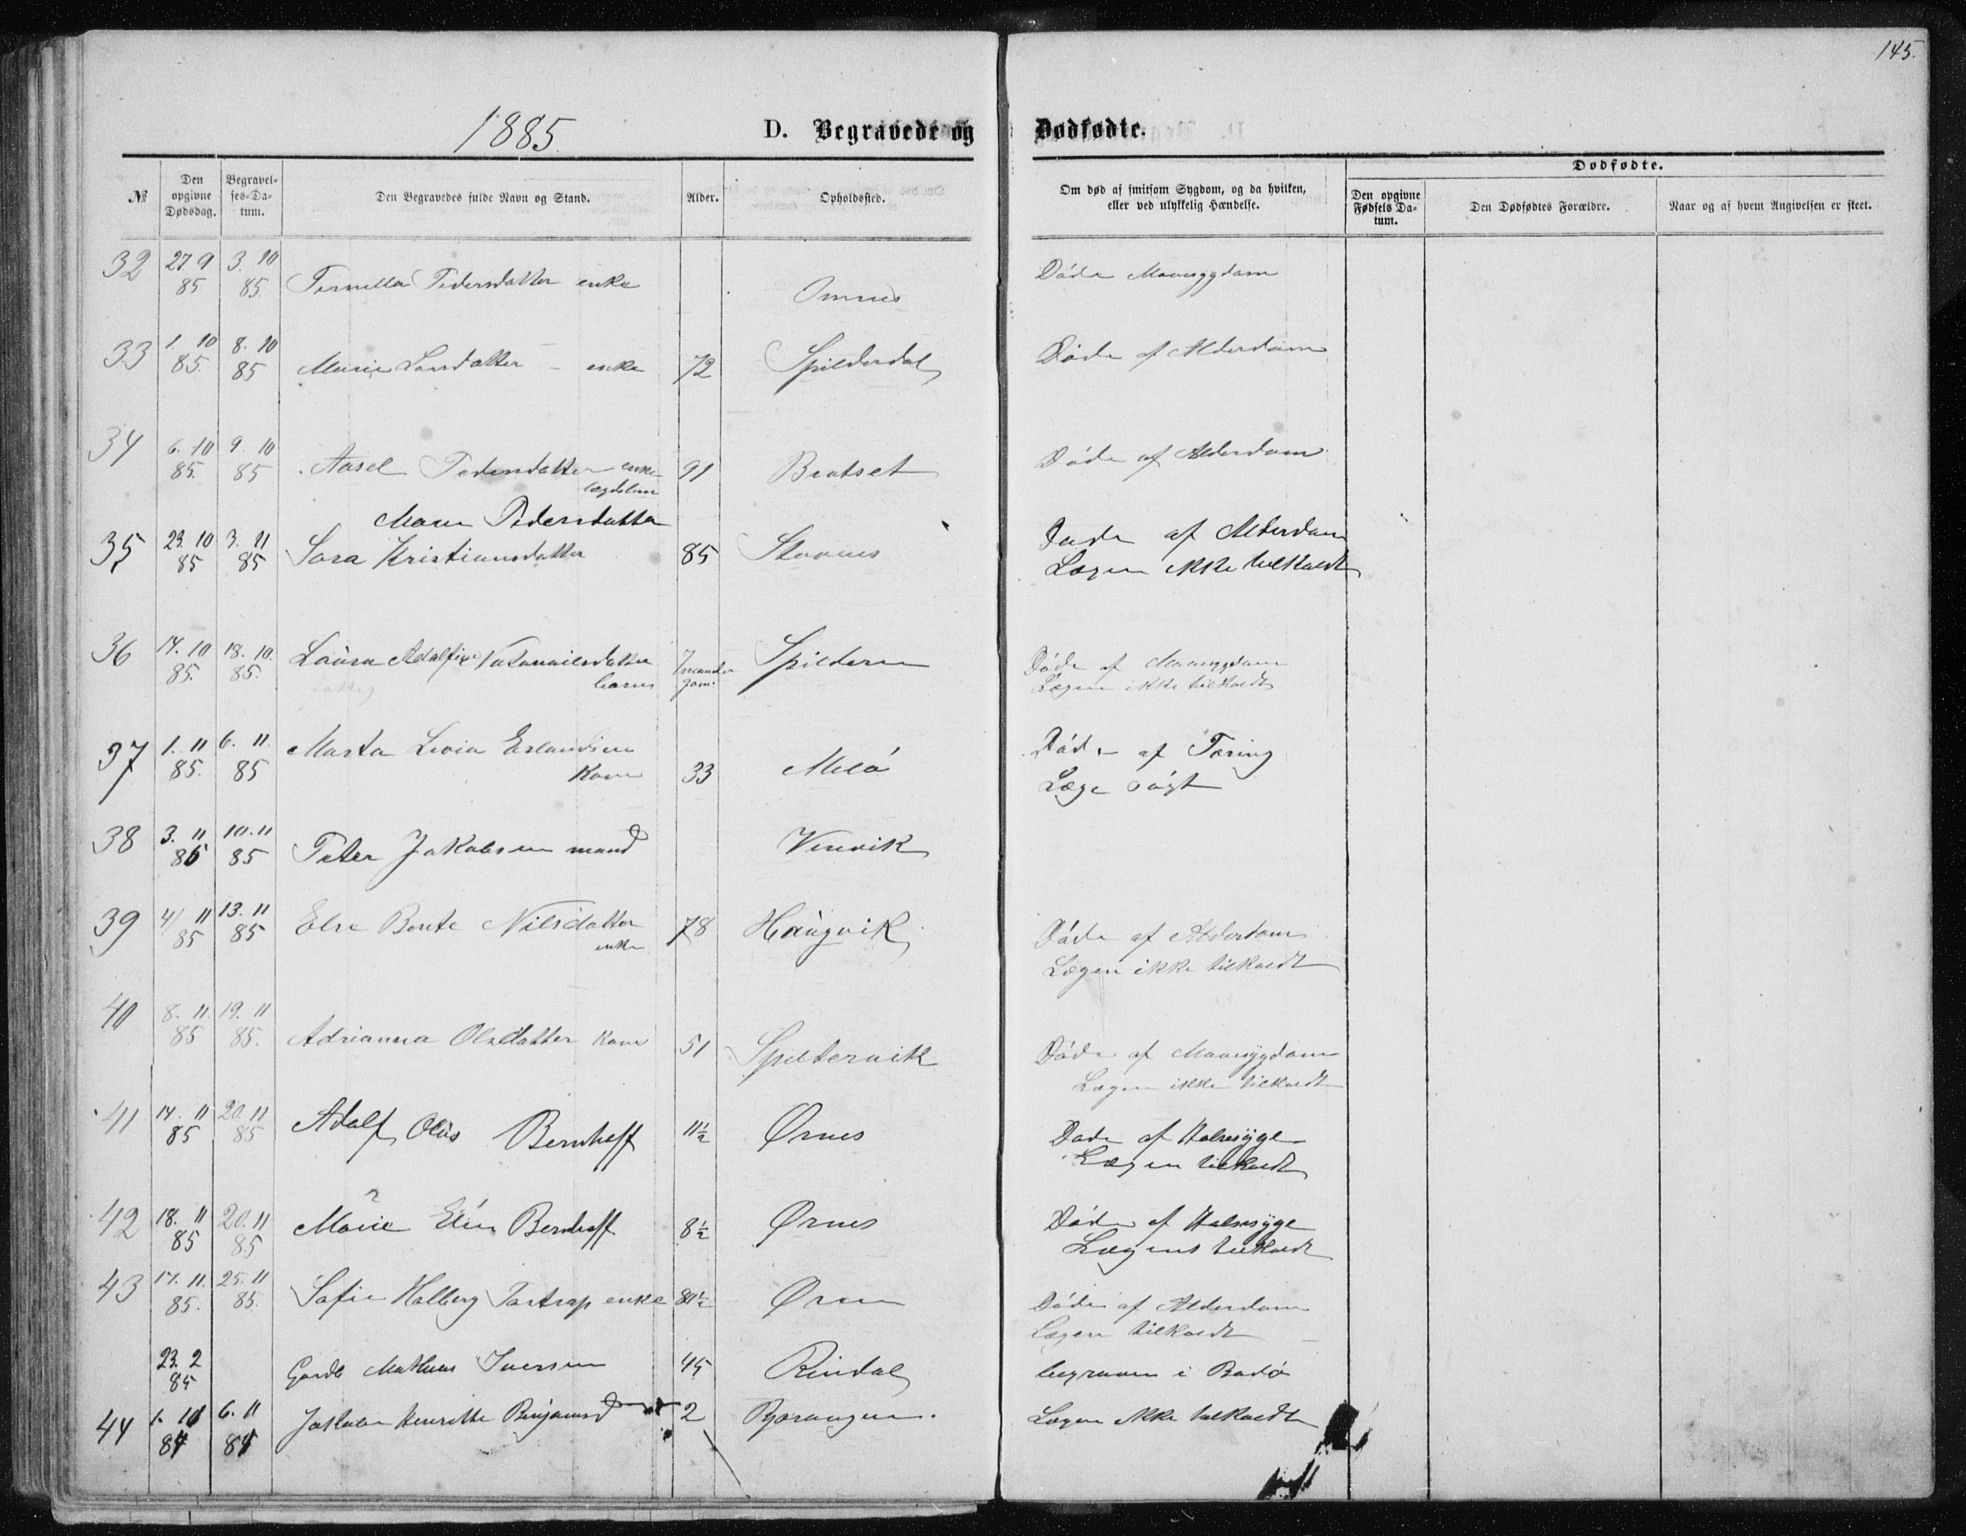 145.
1885
D. Begravede og Dødfødte.
№
Den opgivne Dødsdag.
Begravelses-Datum.
Den Begravedes fulde Navn og Stand.
Alder.
Opholdssted.
Om død af smitsom Sygdom, og da hvilken, eller ved ulykkelig Hændelse.
Dødfødte.
Den opgivne Fødsels Datum.
Den Dødfødtes Forældre.
Naar og af hvem Angivelsen er skeet.
32 27 9 85 3. 10 85. Pernilla Pedersdatter enke Døde Mavesygdom
33 1. 10 85. 8. 10 85 Marie Larsdatter – enke 72 Spilderdal Døde af Alderdom
34 6. 10 85. 9. 10 85 Aasel Pedersdatter enke 91 Bratset Døde af Alderdom
Maren Pedersdatter
35 23. 10 85 3. 11 85 Sara Kristiansdatter 85 Døde af Alderdom
Lægen ikke tilkaldt
36 14. 10 85. 18. 10. 85. Laura Adolfine 7 maaneder Spilderen Døde af Mavesygdom
barn Lægen ikke tilkaldt
fattig
37 1. 11 85. 6. 11. 85 Marta Livia Kone 33 Melö Døde af Tæring
Læge søgt
38 3. 11 85 10. 11 85 Peter Jakobsen mand Venvik
39 4/ 11 85 13. 11 85 Else Bente Nilsdatter enke 78 Haugvik Døde af Alderdom
Lægen ikke tilkaldt
40 8. 11. 85 19. 11 85. Adrianna Olsdatter Kone 51 Spildervik Døde af Mavesygdom
Lægen ikke tilkaldt
41 14. 11 85 20. 11 85 Adolf Olus Bernhoff 11½ Ørnes Døde af Halssyge
Lægen tilkaldt
42 18. 11 85 20. 11 85 Marie Elen Bernhoff 8½ Ørnes Døde af Halssyge
Lægens tilkaldt
43 17. 11. 85. 25. 11 85. Sofie Holberg enke 80½ Døde af Alderdom
Lægen tilkaldt
23. 2 85 Mathias Iversen 45 Rindal begraven i Bodø
44 6. 11 Henritte 2 Bjærangen. Lægen ikke tilkaldt